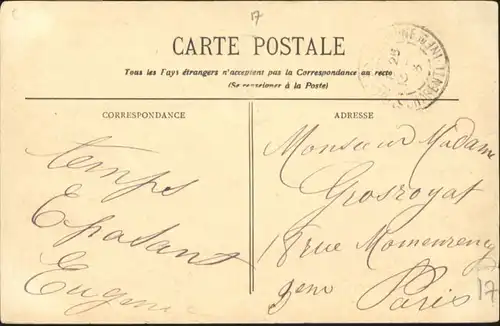 17
CARTE POSTALE
Tous les Pays étrangers n'acceptent pas la Correspondance au recto
(Se renseigner à la Poste)
CORRESPONDANCE
ADRESSE
temps
Epatant
Eugene
Monsieur Madame
Grosroyat
18 rue
Paris
17